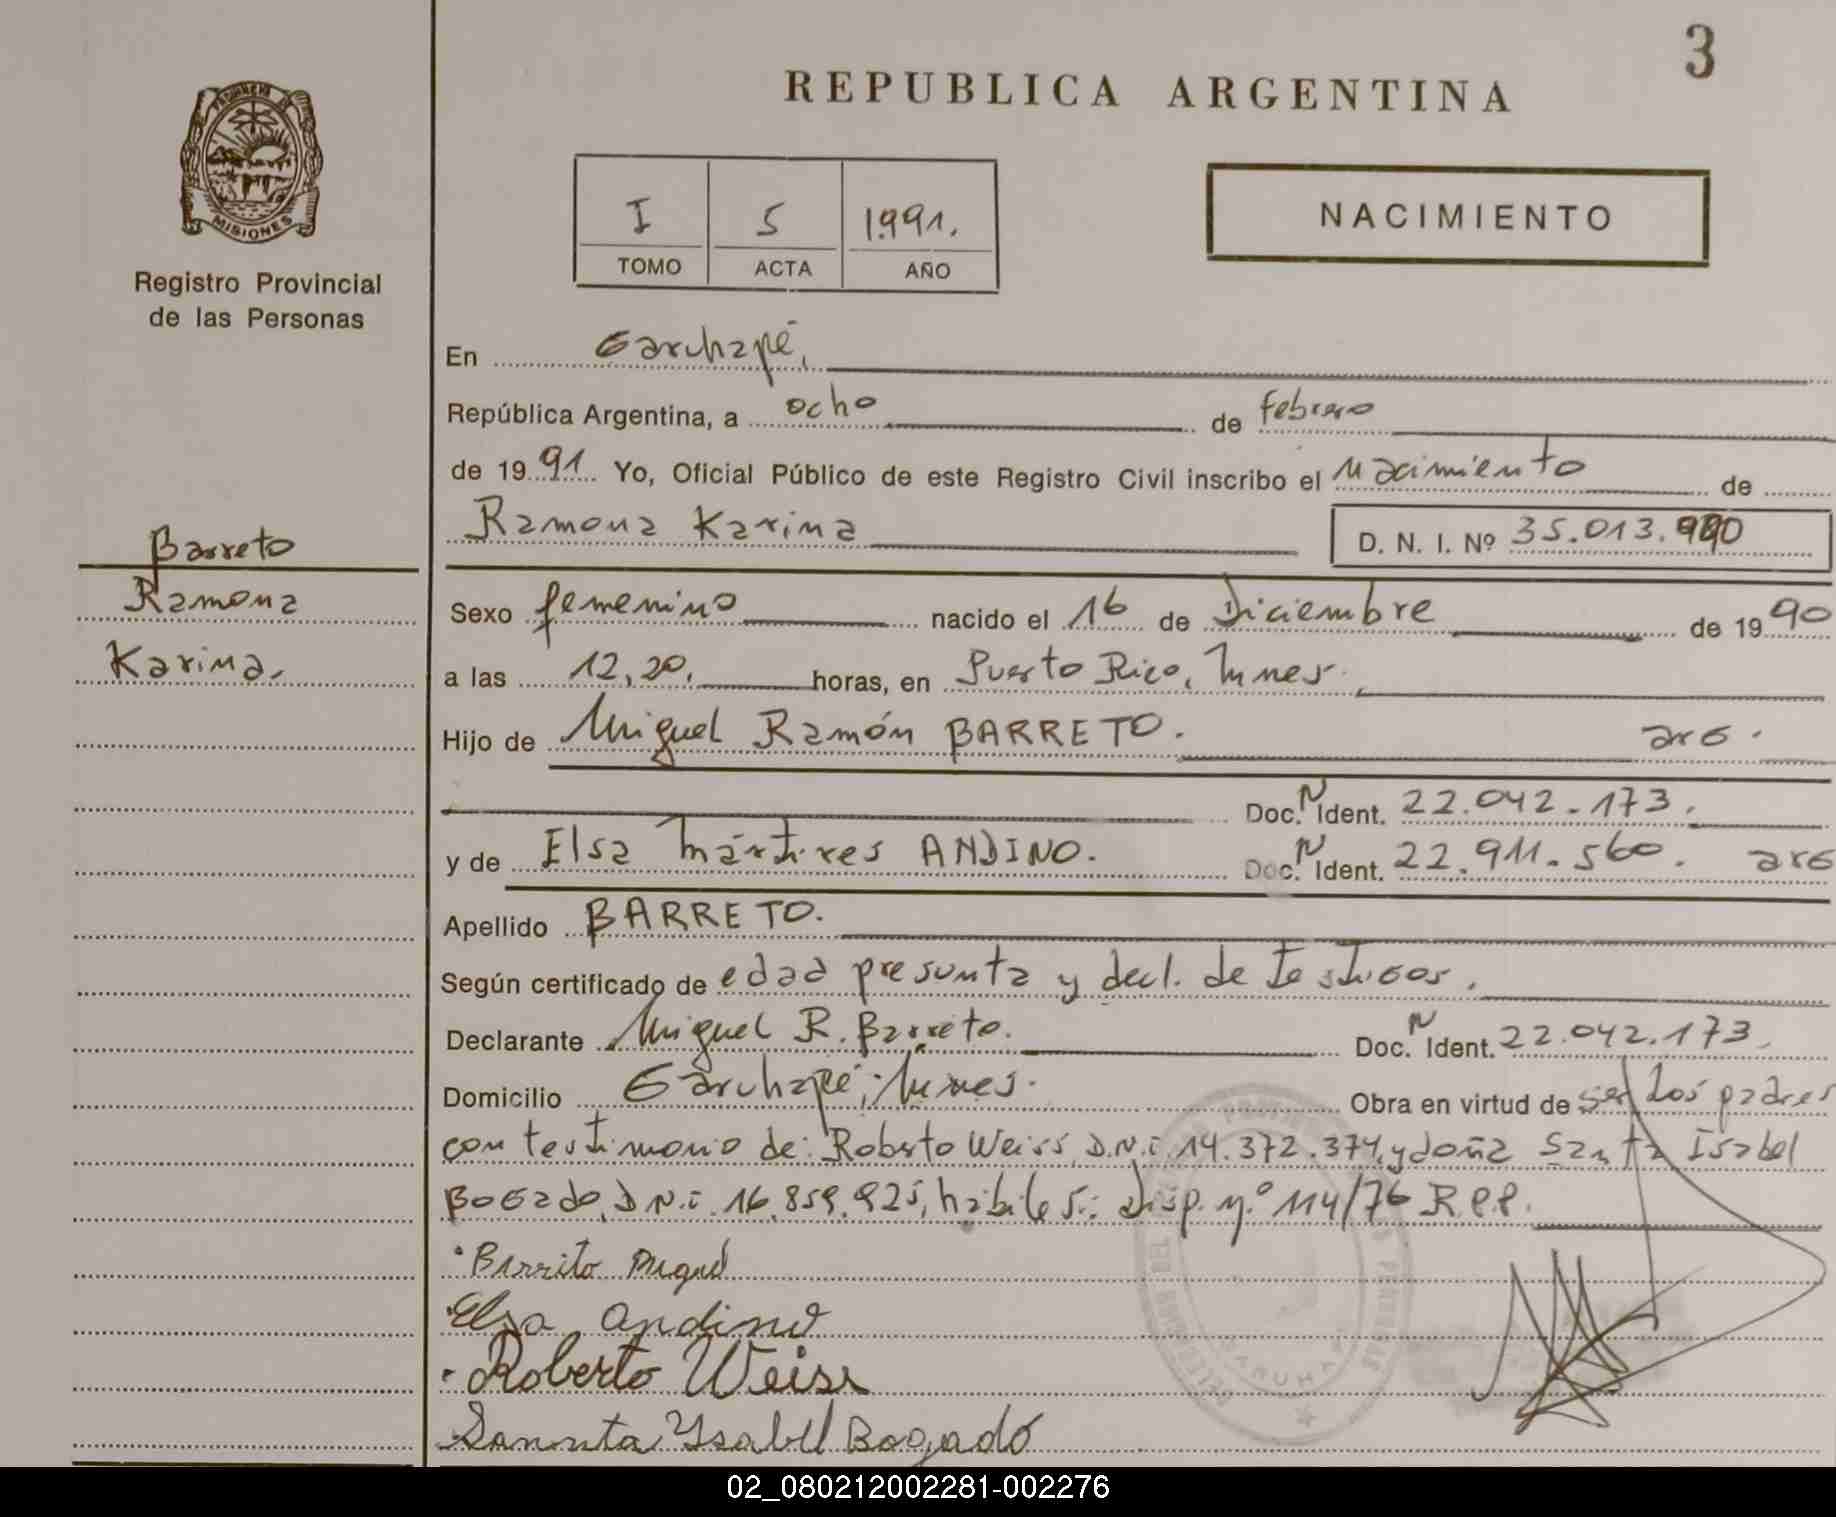 3
REPUBLICA ARGENTINA
PROVINCIA DE
MISIONES
Registro Provincial
de las Personas
I 5 1991.
TOMO ACTA AÑO
NACIMIENTO
En Garuhapé,
República Argentina, a ocho de febrero
de 1991 Yo, Oficial Público de este Registro Civil inscribo el Nacimiento de
Ramona Karina D. N. I. Nº 35.013.990
Barreto
Ramona
Karina.
Sexo femenino nacido el 16 de Diciembre de 1990
a las 12,20, horas, en Puerto Rico,
Hijo de Miguel Ramón BARRETO. arg.
Doc. N Ident. 22.042.173.
y de Elsa Mártires ANDINO. Doc. N Ident. 22.911.560. arg
Apellido BARRETO.
Según certificado de edad presunta y decl. de testigos.
Declarante Miguel R. Barreto. Doc. N Ident. 22.042.173.
Domicilio Garuhapé, Obra en virtud de ser los padres
con testimonio de: Roberto Weiss, D.N.i. 14.372.374, y doña Santa Isabel
Bogado, D.N.i. 16.859.925, hábiles: Disp. nº 114/76 R.P.P.
Barrito Miguel
Elsa Andino
Roberto Weiss
Sannta Ysabel Bogado
02_080212002281-002276